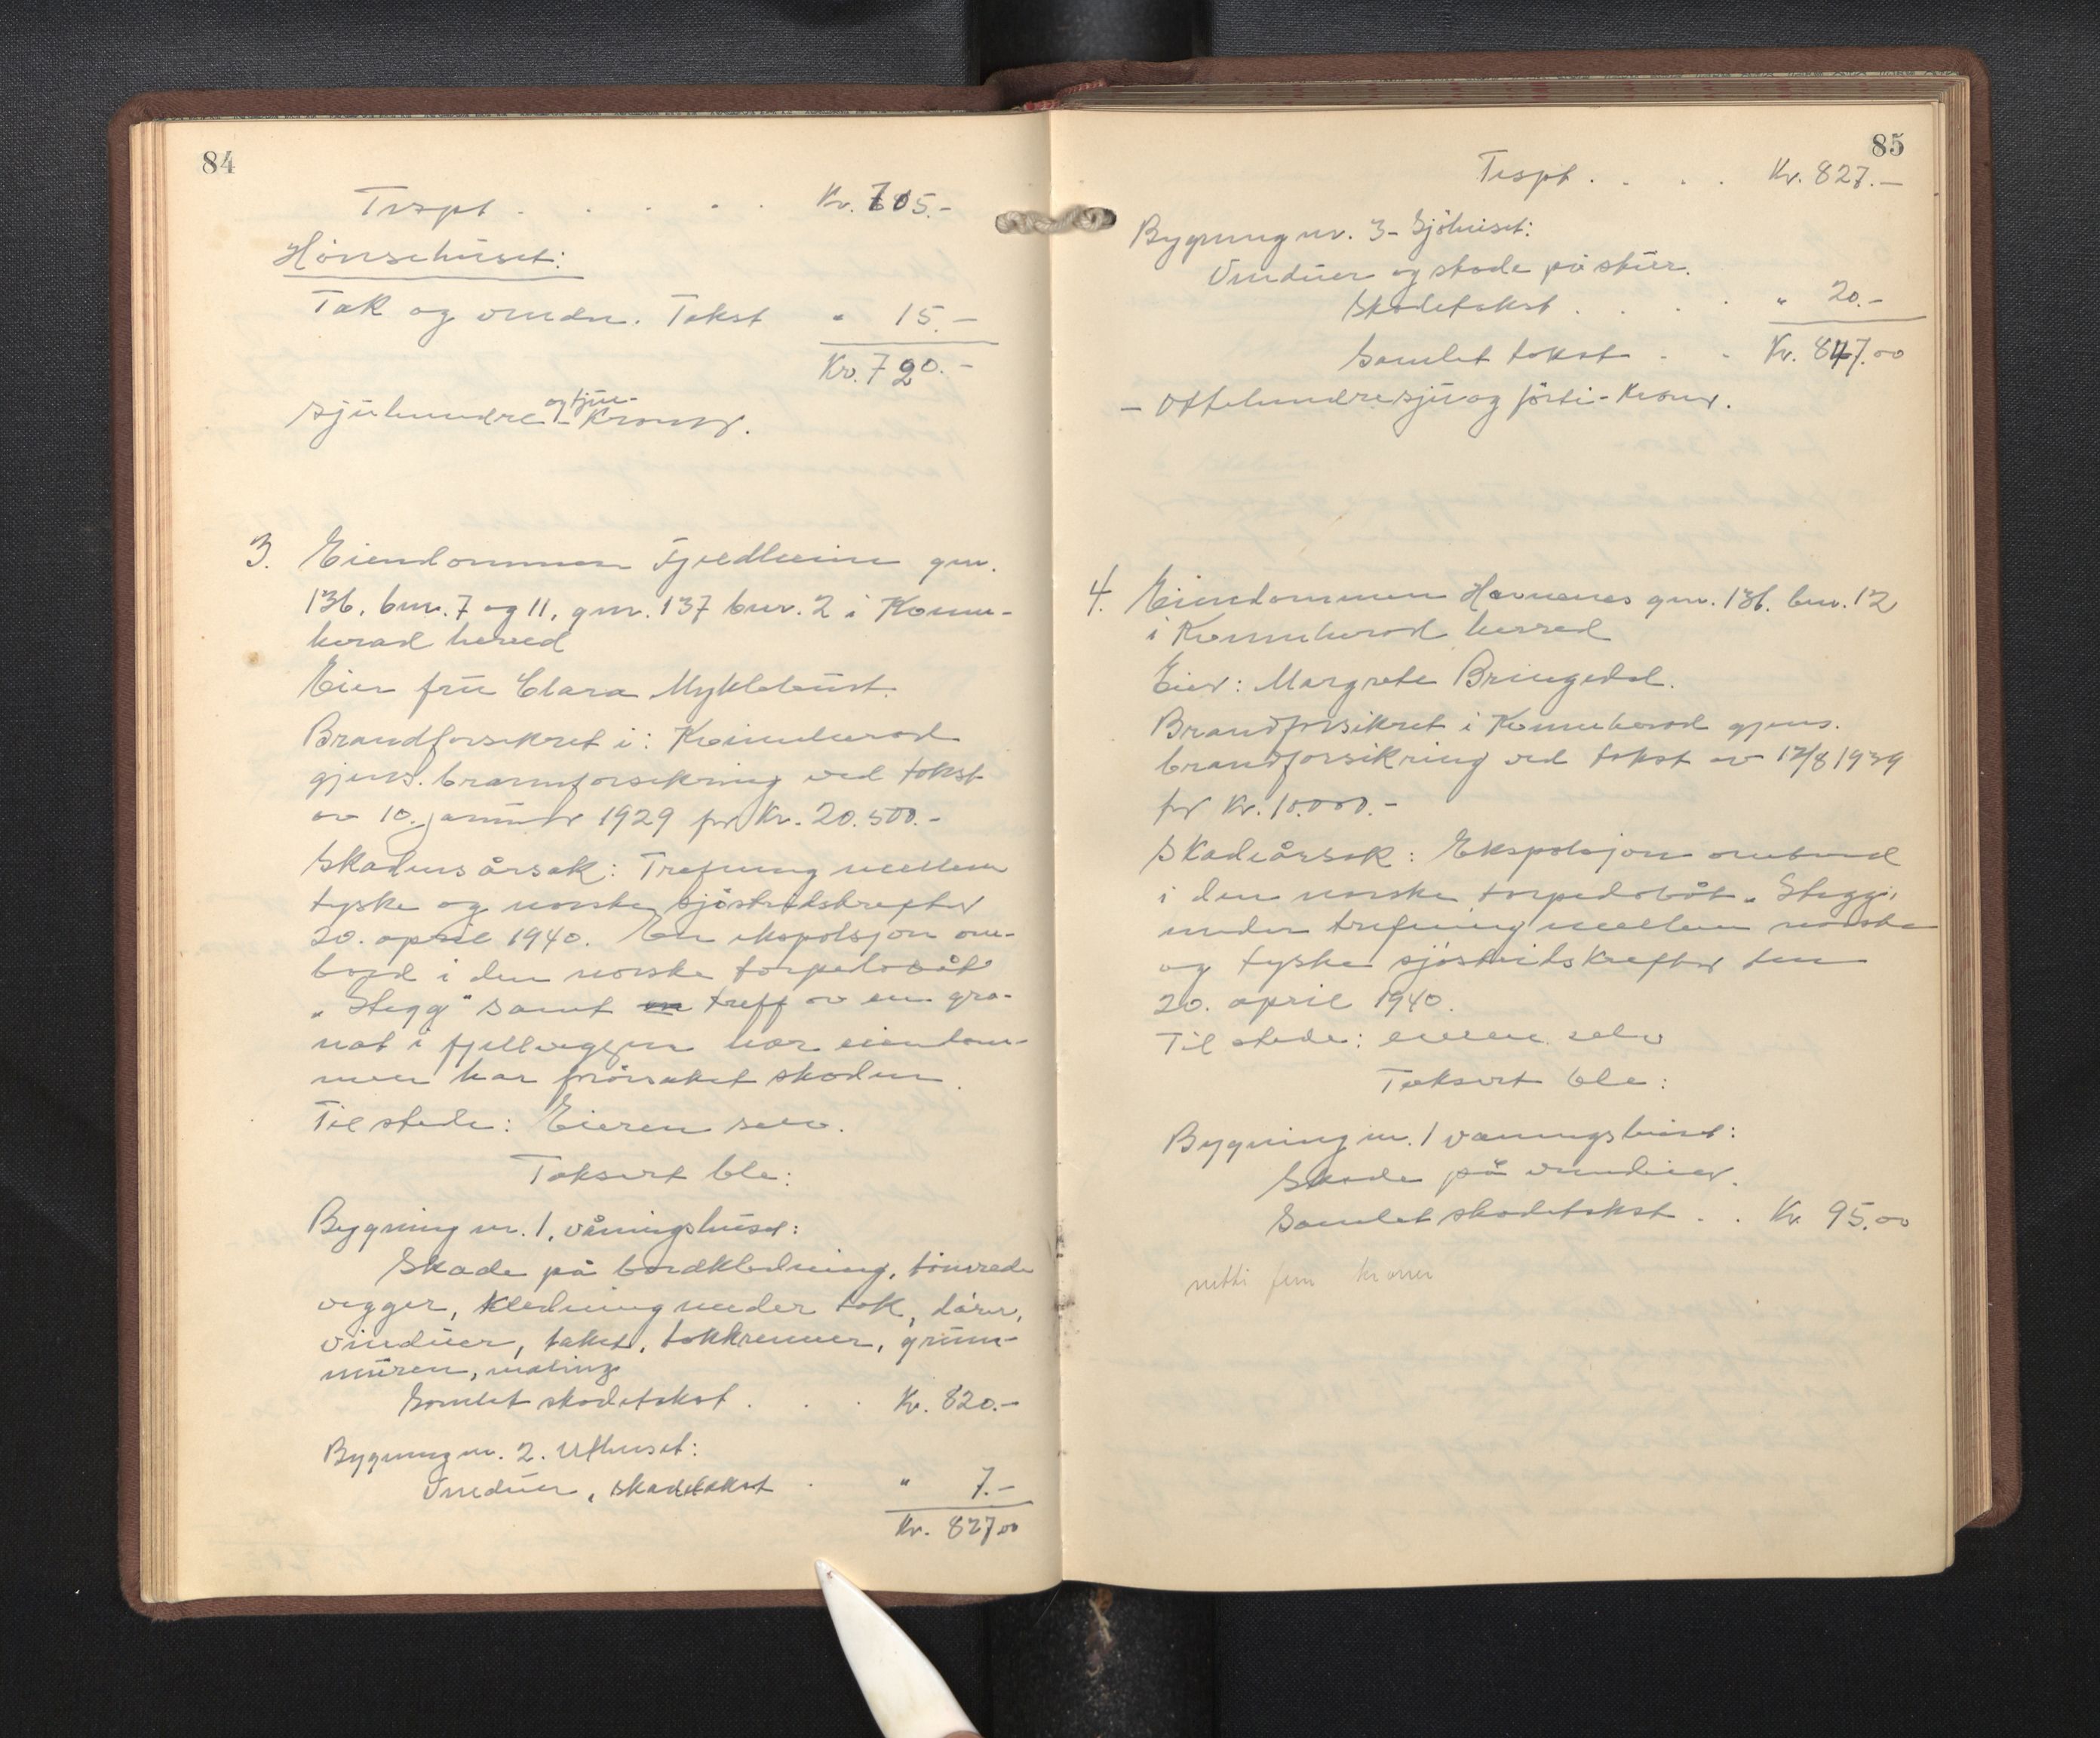 84
Trspt . . . . . Kr. 705.-
Hönsehuset:
Tak og vindu. Takst " 15.-
Kr. 720.-
sjuhundre og tjue - Kroner.
3. Eiendommen Fjeldheim gnr.
136, bnr. 7 og 11, gnr. 137 bnr. 2 i Kvinn-
herad herred
Eier fru Clara Myklebust.
Brandforsikret i: Kvinnherad
gjens. brannforsikring ved takst
av 10. januar 1929 for Kr. 20.500.-
Skadens årsak: Trefning mellem
tyske og norske sjöstridskrefter
20. april 1940. En ekspolsjon om-
bord i den norske torpedobåt
"Stegg" samt en treff av en gra-
nat i fjellveggen nær eiendom-
men har forårsaket skaden.
Til stede: Eieren selv.
Taksert ble:
Bygning nr. 1, våningshuset:
Skade på bordkledning, tömrede
vegger, kledning under tak, dörer,
vinduer, taket, takkrenner, grunn-
muren, maling
Samlet skadetakst . . . Kr. 820.-
Bygning nr. 2. Uthuset:
Vinduer, skadetakst . " 7.-
Kr. 827.00
85
Trspt . . . . Kr. 827.-
Bygning nr. 3 - Sjöhuset:
Vinduer og skade på skur.
Skadetakst . . . . " 20.-
Samlet takst - - Kr. 847.00
- Ottehundresju og förti - Kroner.
4. Eiendommen Havnenes gnr. 136. bnr. 12
i Kvinnherad herred
Eier: Margrete Bringedal.
Brandforsikret i Kvinnherad gjens.
brandforsikring ved takst av 12/8 1939
for Kr. 10.000.-
Skadeårsak: Ekspolsjon ombord
i den norske torpedobåt "Stegg",
under trefning mellem norske
og tyske sjöstridskrefter den
20. april 1940.
Til stede: eieren selv
Taksert ble:
Bygning nr. 1 våningshuset:
Skade på vinduer.
Samlet skadetakst . . Kr. 95.00
nitti fem kroner